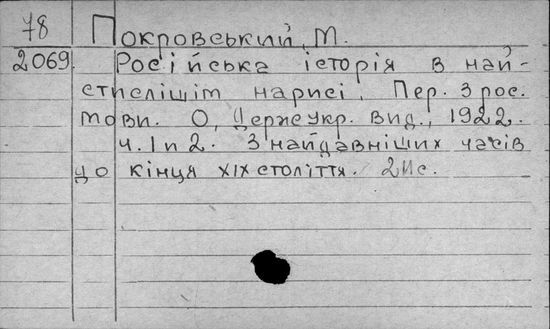 78 Покровський, М.
2069. Російська історія в най-
стислішім нарисі. Пер. з рос.
мови. О, Держ. укр. вид., 1922.
ч. 1 и 2. З найдавніших часів
до кінця XIX століття.